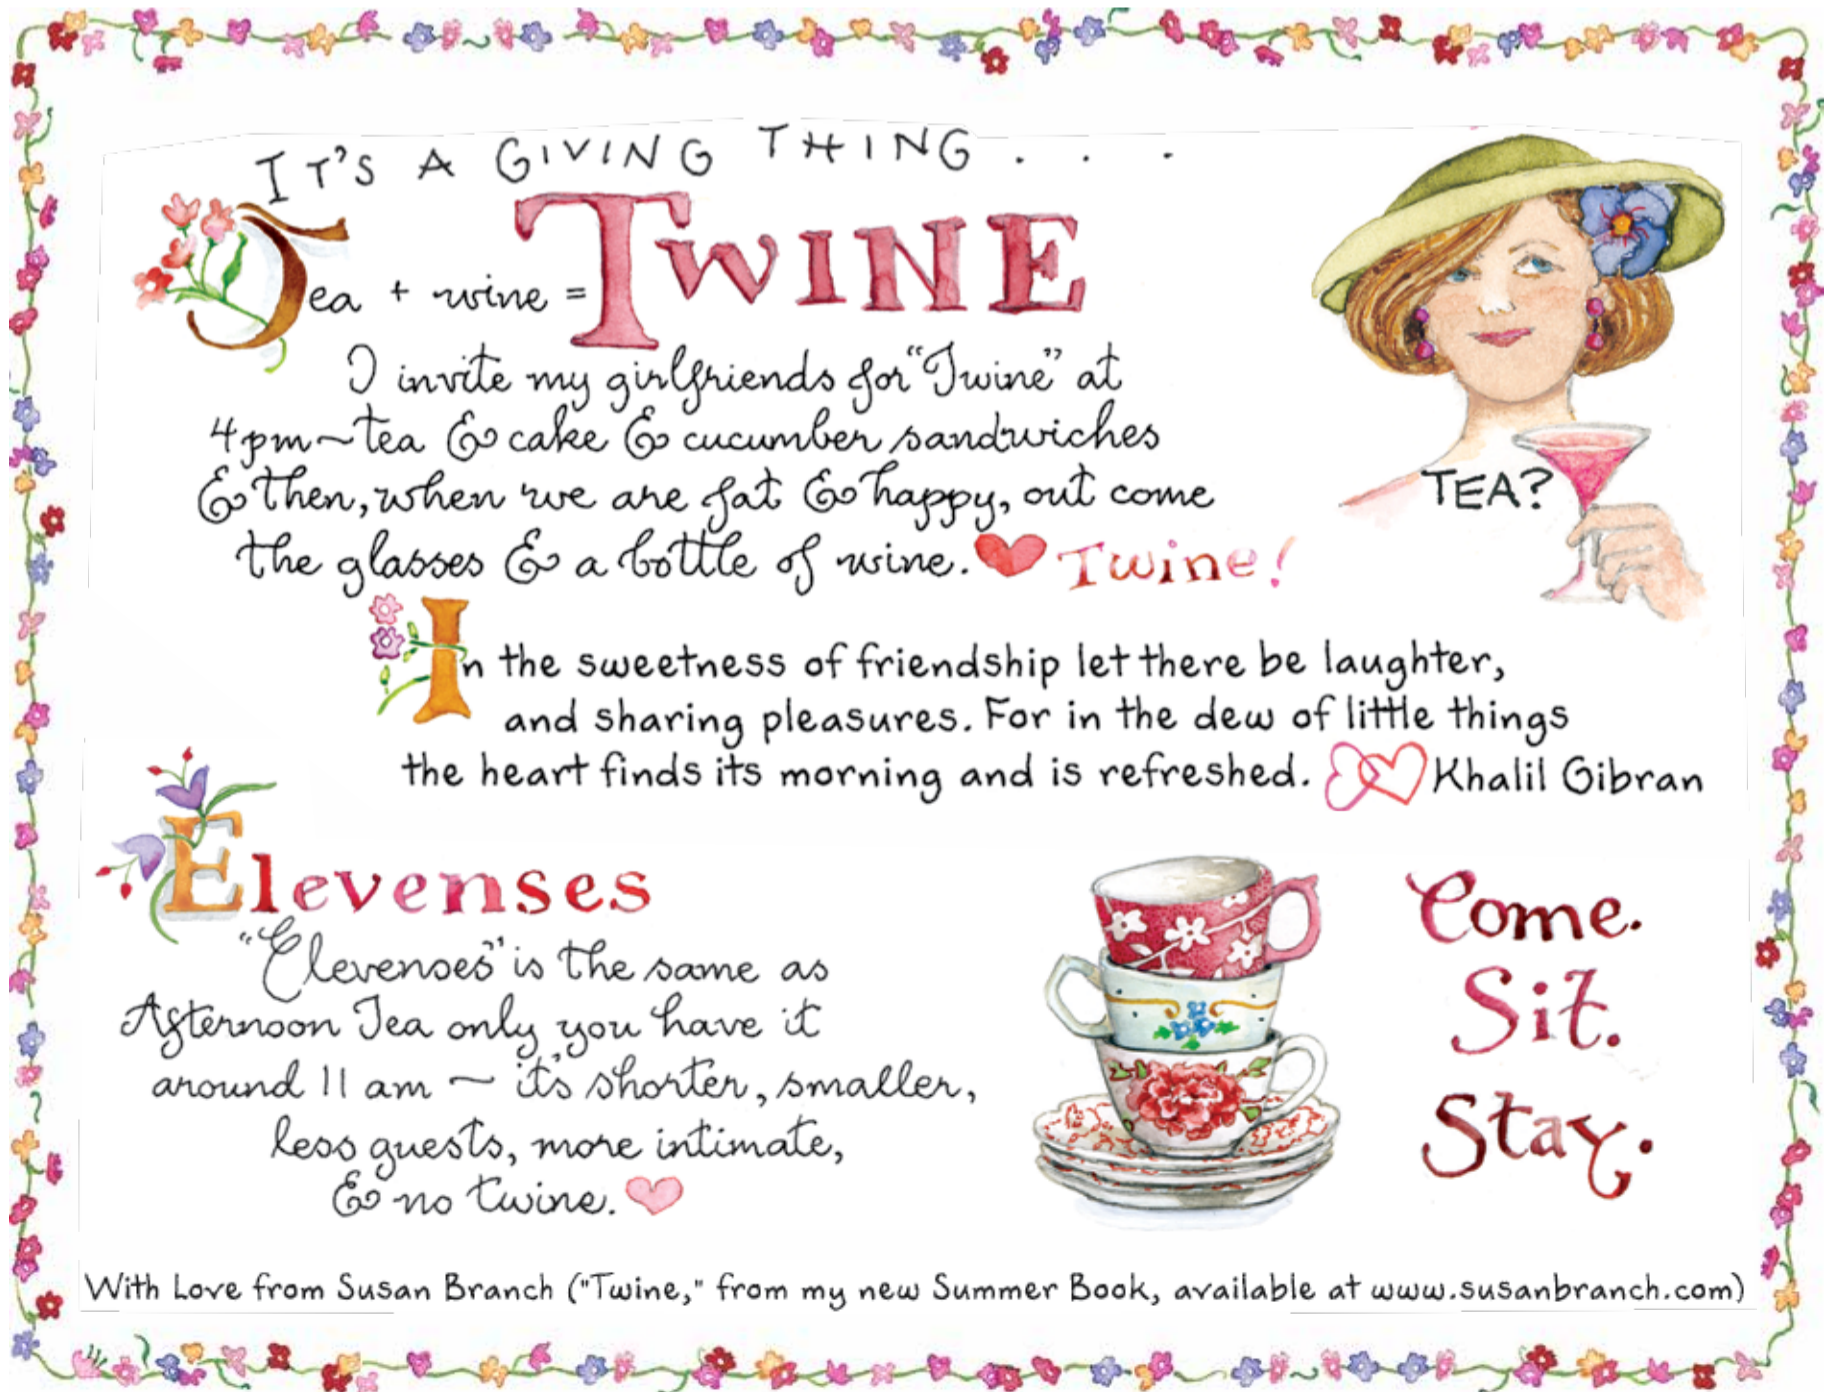 IT'S A GIVING THING . . .
Tea + wine = TWINE
I invite my girlfriends for "Twine" at
4pm~tea & cake & cucumber sandwiches
& then, when we are fat & happy, out come
the glasses & a bottle of wine. Twine!
TEA?
In the sweetness of friendship let there be laughter,
and sharing pleasures. For in the dew of little things
the heart finds its morning and is refreshed. Khalil Gibran
Elevenses
"Elevenses" is the same as
Afternoon Tea only you have it
around 11 am ~ it's shorter, smaller,
less guests, more intimate,
& no twine.
Come.
Sit.
Stay.
With Love from Susan Branch ("Twine," from my new Summer Book, available at www.susanbranch.com)